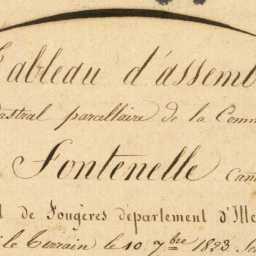 Tableau d'assemb
dastral parcellaire de la Comm
Fontenelle Can
t de Fougères département d'Ille
le terrain le 10 7bre 1823 So